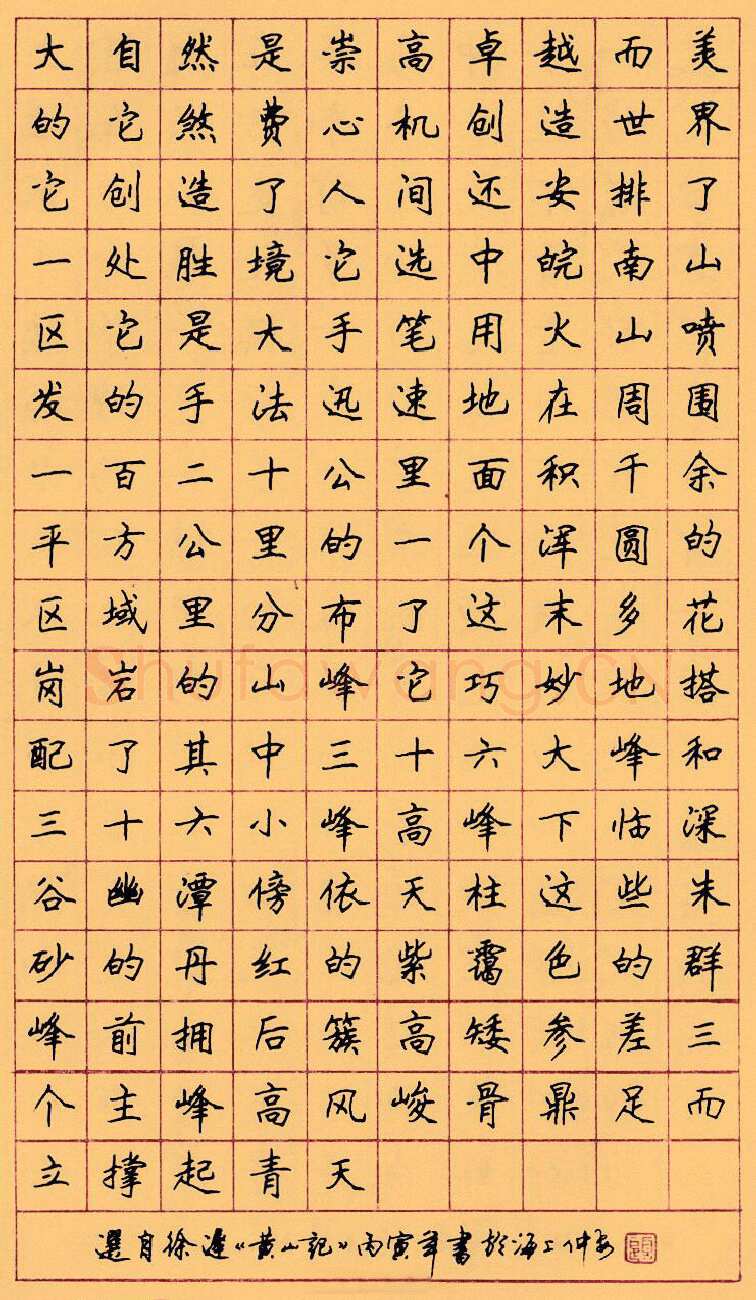 大自然是崇高卓越而美
的它煞费心机创造世界
它创造了人间还安排了
一处胜境它选中皖南山
区它是大手笔用火山喷
发的手法迅速地在周围
一百二十公里面积千余
平方公里的一个浑圆的
区域里分布了这末多花
岗岩的山峰它巧妙地搭
配了其中三十六大峰和
三十六小峰高峰下临深
谷幽潭傍依天柱这些朱
砂的丹红的紫霭色的群
峰前拥后簇高矮参差三
个主峰高风峻骨鼎足而
立撑起青天
選自徐遲《黄山記》丙寅年書於海上仲安
Shufawang.CN